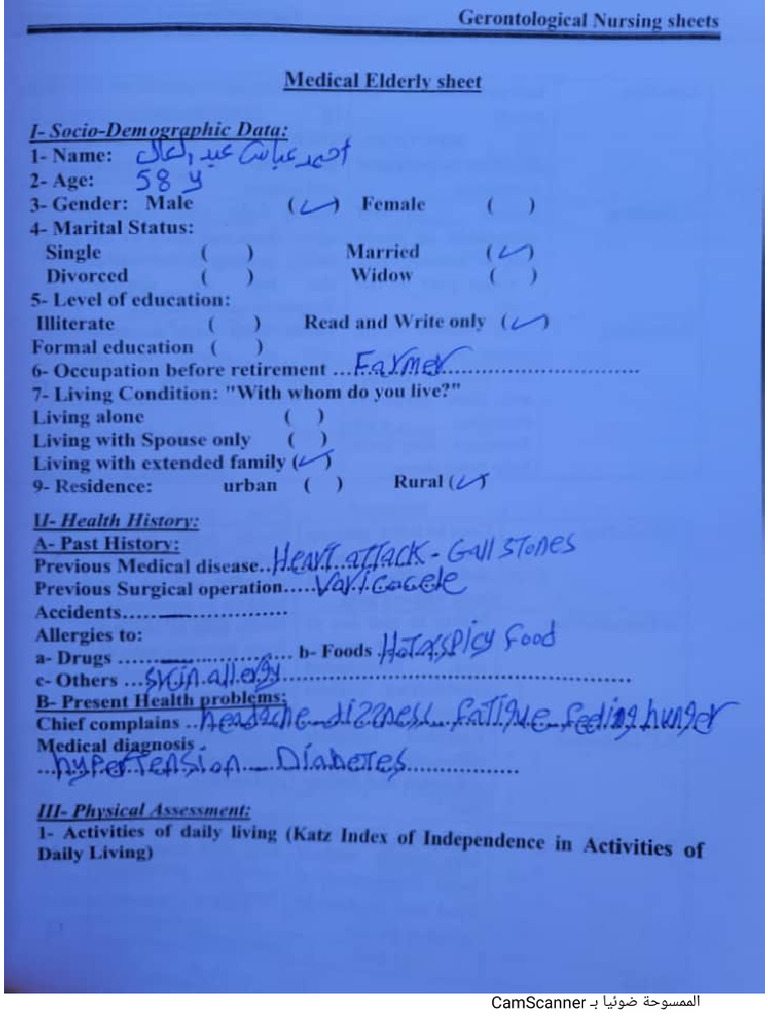 Gerontological Nursing sheets
Medical Elderly sheet
I- Socio-Demographic Data:
1- Name: احمد عباس عبد العال
2- Age: 58 y
3- Gender: Male (✓) Female ( )
4- Marital Status:
Single ( ) Married (✓)
Divorced ( ) Widow ( )
5- Level of education:
Illiterate ( ) Read and Write only (✓)
Formal education ( )
6- Occupation before retirement ...Farmer..............................
7- Living Condition: "With whom do you live?"
Living alone ( )
Living with Spouse only ( )
Living with extended family (✓)
9- Residence: urban ( ) Rural (✓)
II- Health History:
A- Past History:
Previous Medical disease..Heart attack - Gall stones
Previous Surgical operation.....Varicocele
Accidents........................
Allergies to:
a- Drugs ......................... b- Foods Hot spicy Food
c- Others ...skin allergy..................................................
B- Present Health problems:
Chief complains ..headache dizzness fatigue feeding hunger
Medical diagnosis .
...hypertension - Diabetes................
III- Physical Assessment:
1- Activities of daily living (Katz Index of Independence in Activities of
Daily Living)
الممسوحة ضوئيا بـ CamScanner